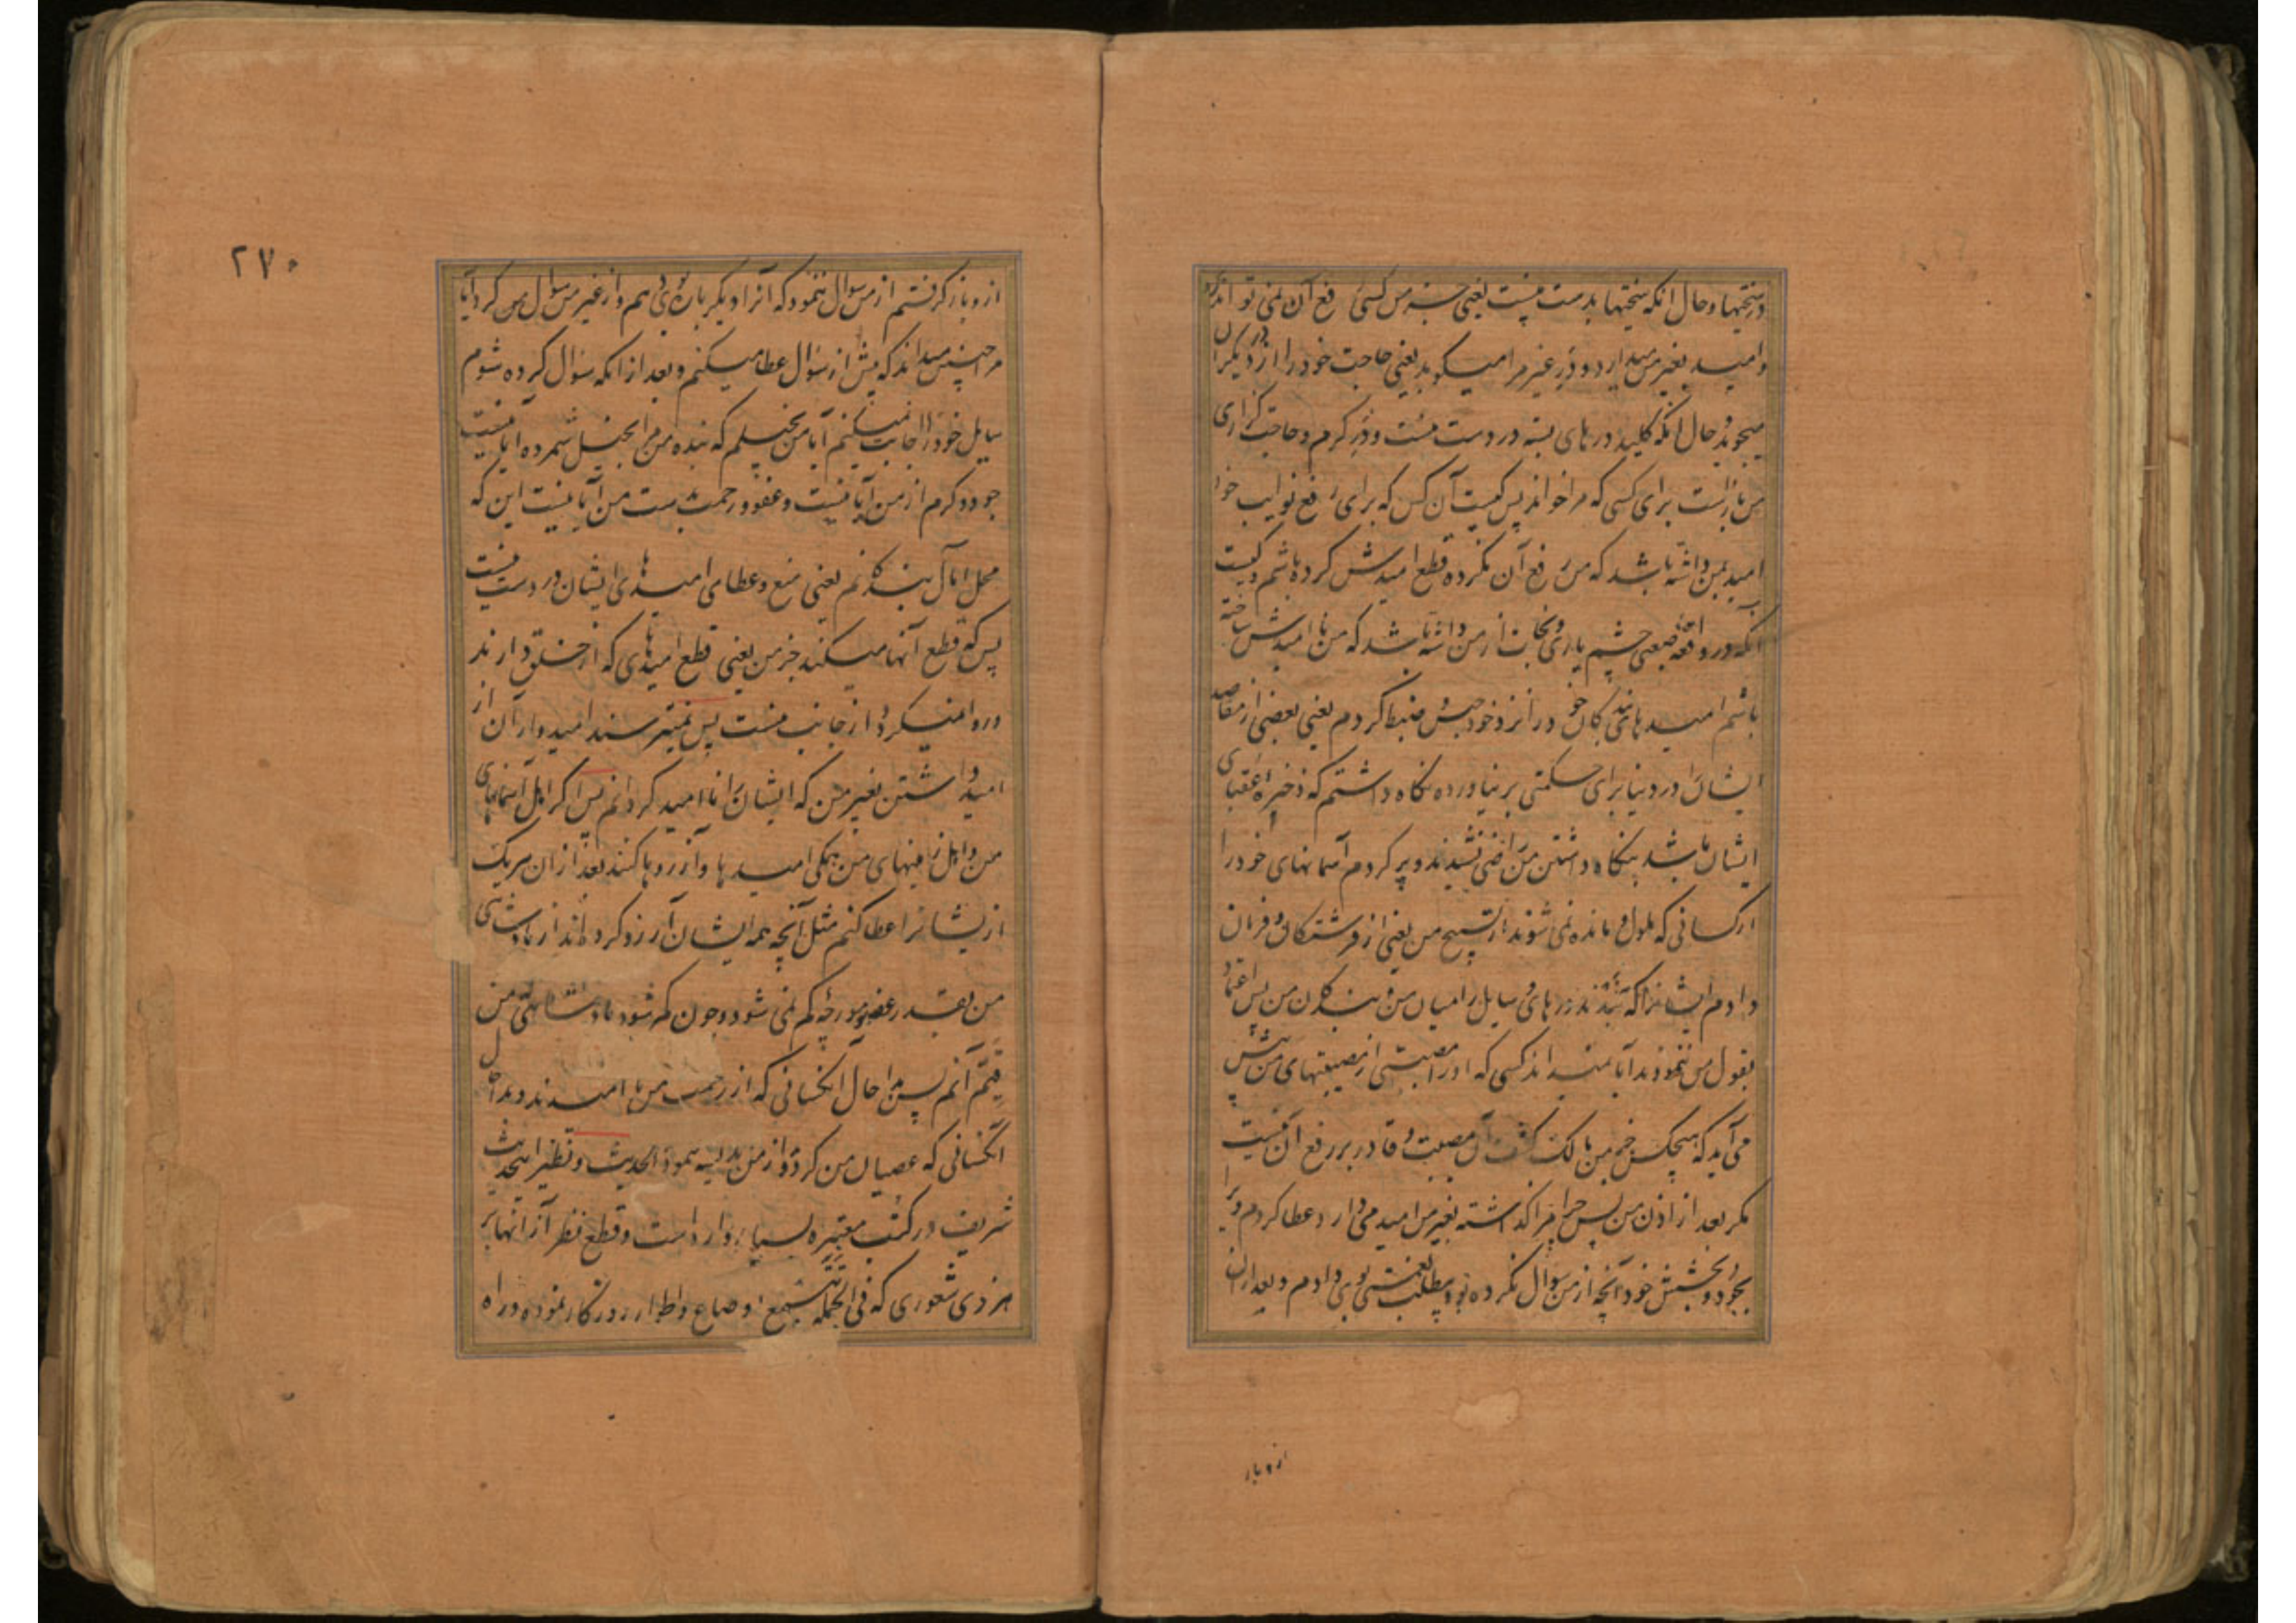 در سختیها و حال انکه سختیها بدست منست یعنی جز من کسی رفع آن نمی تواند کرد
و امید بغیر من میدارد و در غیر مرا میکوبد یعنی حاجت خود را از دیگران
میجوید و حال آنکه کلید درهای بسته در دست منست و در کرم و حاجت گزاری
من بازاست برای کسی که مرا خواند پس کیست آن کس که برای رفع نوایب خود
امید بمن داشته باشد که من رفع آن نکرده قطع امیدش کرده باشم و کیست
آنکه در واقعه صعبی چشم یاری و نجات از من داشته باشد که من نا امیدش ساخته
باشم امیدهای بندکان خود را نزد خود ضبط کردم یعنی بعضی از مقاصد
ایشان را در دنیا برای حکمتی بر نیاورده نکاه داشتم که ذخیره عقبای
ایشان باشد بنکاه داشتن من راضی نشدند و پر کردم آسمانهای خود را
از کسانی که ملول و مانده نمی شوند از تسبیح من یعنی از فرشتکان و فرمان
دادم ایشانرا که نبندند درهای وسایل را میان من و بندکان من پس اعتماد
بقول من ننمودند آیا نمیداند کسی که او را مصیبتی از مصیبتهای من پیش
می آید که هیچکس جز من مالک کشف آن مصیبت و قادر بر رفع آن نیست
مکر بعد از اذن من پس چرا مرا کذاشته بغیر من امید می دارد عطا کردم ویرا
بجود و بخشش خود آنچه از من سوال نکرده بود و بی مطلب نعمتش بوی دادم و بعد ازان
از و باز
۲۷۰
از و باز کرفتم از من سوال ننمود که آنرا دیگر بار بوی دهم و از غیر من سوال کرد آیا
مرا چنین میداند که پیش از سوال عطا میکنم و بعد از انکه سوال کرده شوم
سایل خود را اجابت نمیکنم آیا من بخیلم که بنده من مرا بخیل شمرده آیا نیست
جود و کرم از من آیا نیست و عفو و رحمت بدست من آیا نیست این که
محل آمال بندکانم یعنی منع و عطای امیدهای ایشان در دست منست
پس که قطع آنها میکند جز من یعنی قطع امیدهای که از خلق دارند
و روا نمیکردد از جانب منست پس نمیترسند امیدواران از
امید داشتن بغیر من که ایشان را نا امید کردانم پس اکر اهل آسمانهای
من و اهل زمینهای من همکی امیدها و آرزوها کنند بعد از ان هریک
از یشانرا عطا کنم مثل آنچه همه ایشان آرزو کرده اند از پادشاهی
من بقدر عضو مورچه کم نمی شود و چون کم شود پادشاهی که من
قیم آنم پس بدا حال آنکسانی که از رحمت من نا امیدند و بدا حال
آنکسانی که عصیان من کرده و از من اندیشه ننمود الحدیث و نظیر این حدیث
شریف در کتب معتبره بسیار وارد است و قطع نظر از انها بر
هر ذی شعوری که فی الجمله تتبع اوضاع و اطوار روزکار نموده و راه